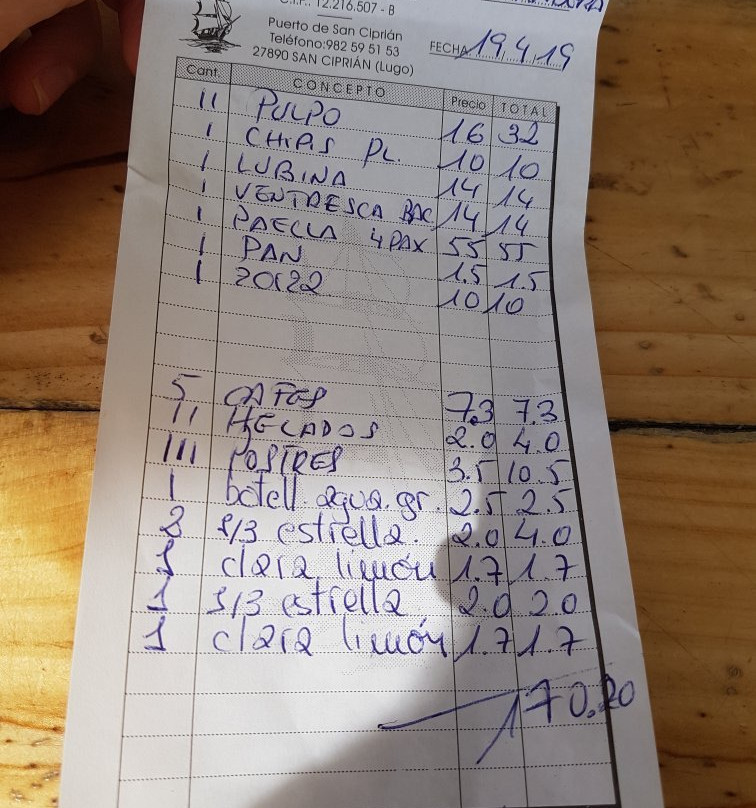 C.I.F.: 12.216.507 - B
Puerto de San Ciprián
Teléfono: 982 59 51 53
27890 SAN CIPRIÁN (Lugo)
FECHA 19.4.19
Cant. CONCEPTO Precio TOTAL
II PULPO 16 32
1 CHIPIS PL. 10 10
1 LUBINA 14 14
1 VENTRESCA BAC 14 14
1 PAELLA 4 PAX 55 55
1 PAN 1.5 1.5
1 10 10
5 CAFES 7.3 7.3
II HELADOS 2.0 4.0
III POSTRES 3.5 10.5
1 botell agua. gr. 2.5 2.5
2 1/3 estrella. 2.0 4.0
1 clara limón 1.7 1.7
1 1/3 estrella 2.0 2.0
1 clara limón 1.7 1.7
170,20